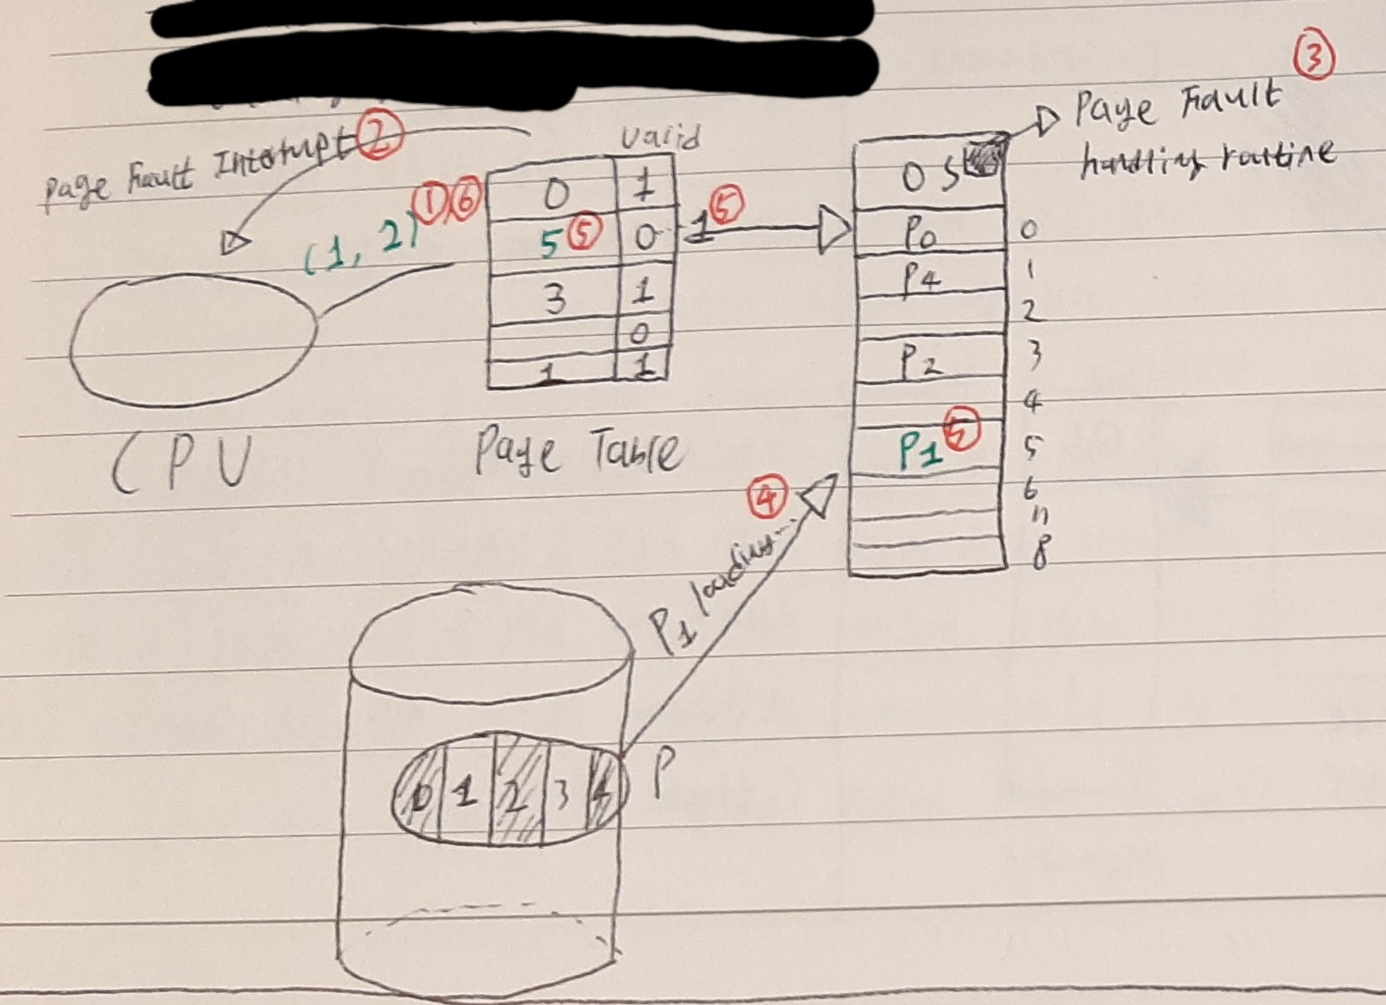 Page Fault Interrupt ②
Page Fault ③
handling routine
valid
(1, 2) ① ⑥
0 1
5 ⑤ 0 1 ⑤
3 1
0
1 1
OS
P0 0
P4 1
2
P2 3
4
P1 ⑤ 5
6
8
CPU
Page Table
④
P1 loading
0 1 2 3 4
P